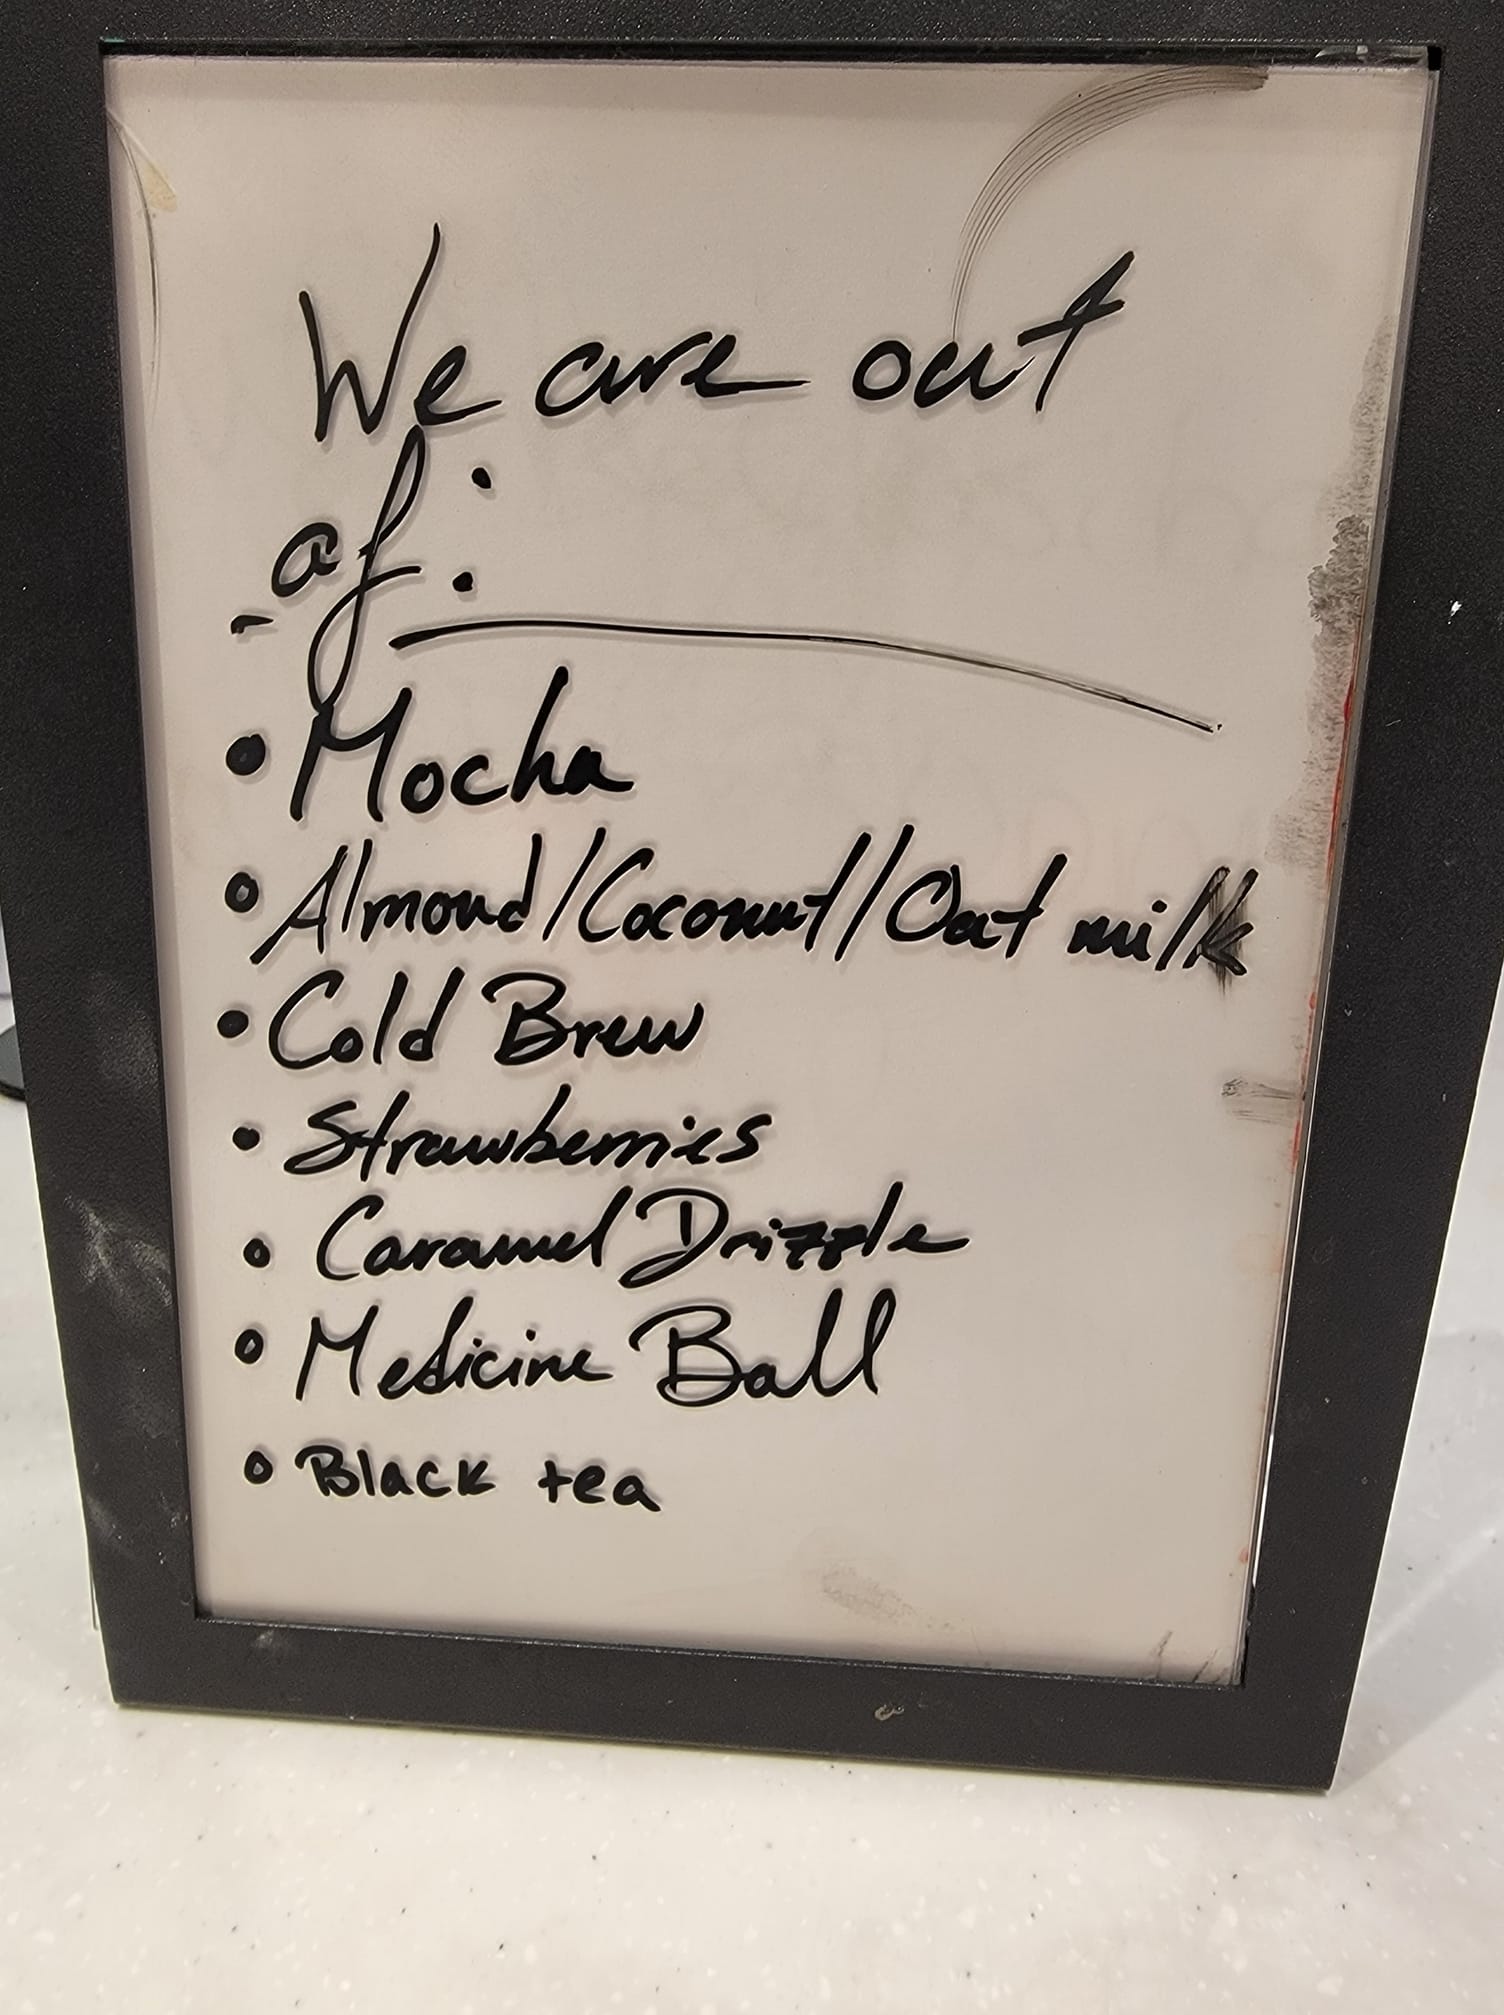 We are out
of:
• Mocha
• Almond/Coconut/Oat milk
• Cold Brew
• Strawberries
• Caramel Drizzle
• Medicine Ball
• Black tea